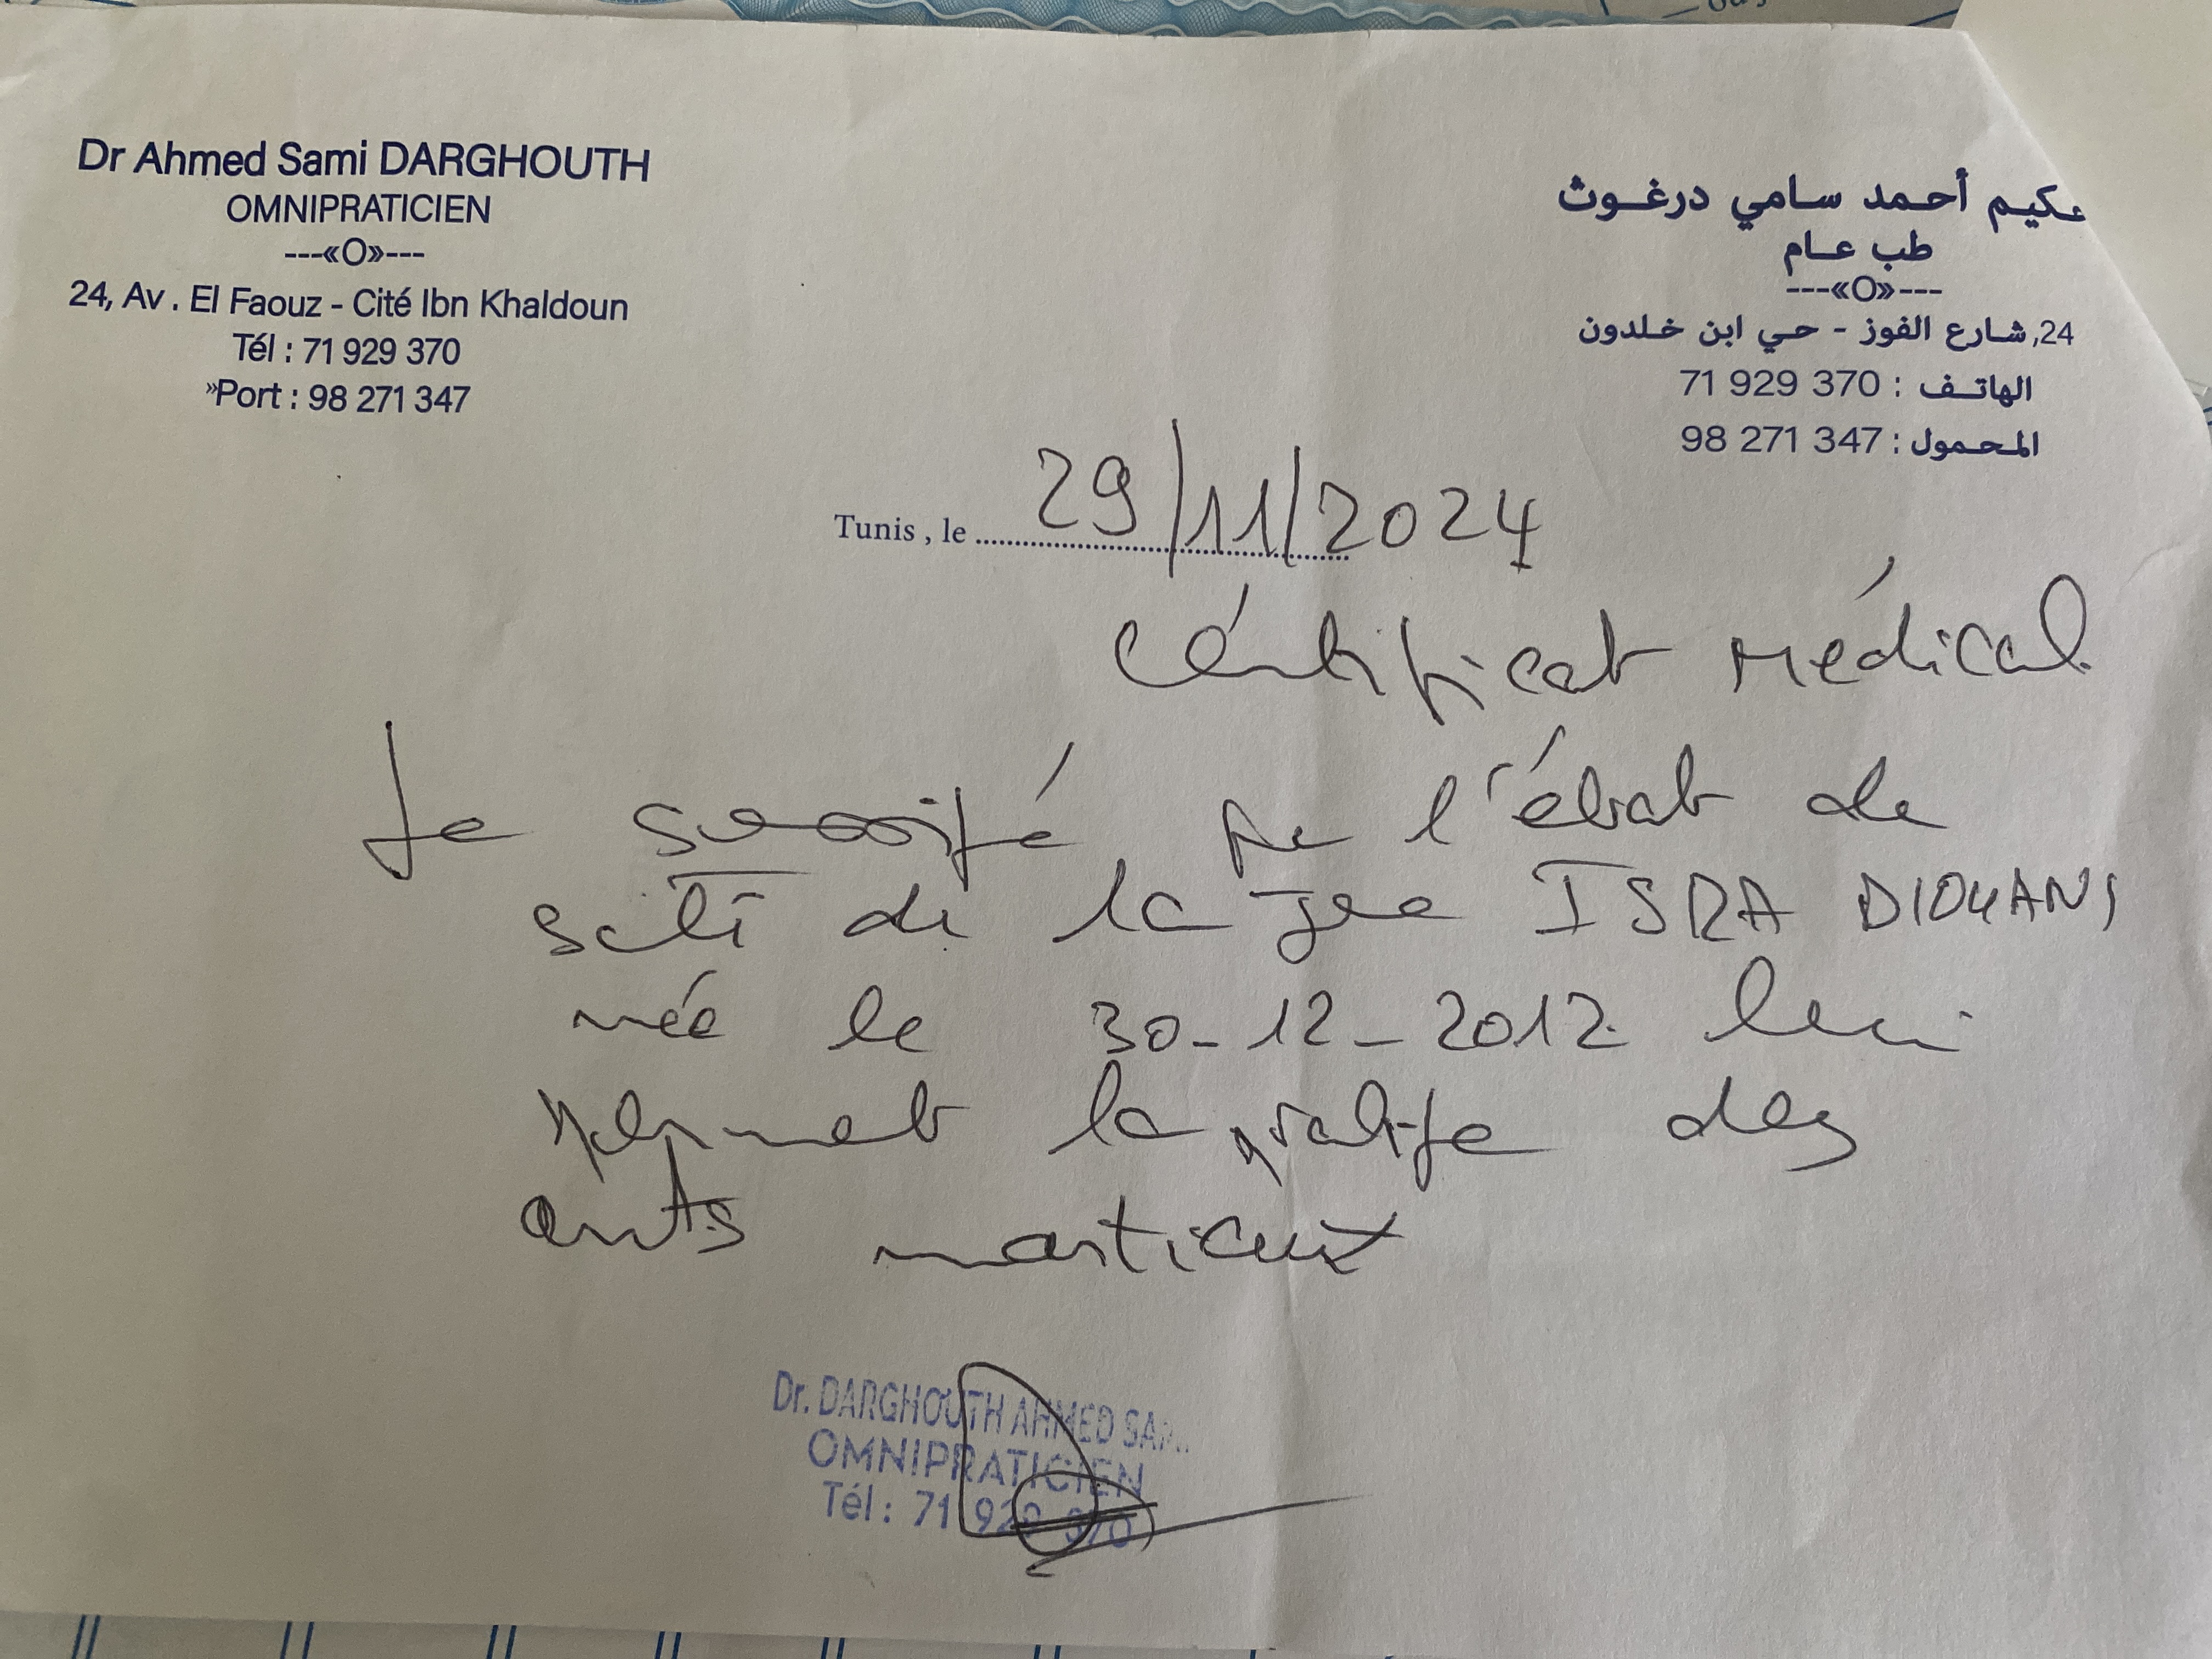 Dr Ahmed Sami DARGHOUTH
OMNIPRATICIEN
---«O»---
24, Av . El Faouz - Cité Ibn Khaldoun
Tél : 71 929 370
»Port : 98 271 347
أحمد سامي درغوث
طب عام
---«O»---
24, شارع الفوز - حي ابن خلدون
الهاتف : 71 929 370
المحمول : 98 271 347
Tunis , le 29/11/2024
Cértificat Médical
Je l'état de
de la ISRA
née le 30-12-2012 lui
permet la des
arts martiaux
Dr. DARGHOUTH AHMED
OMNIPRATICIEN
Tél : 71 929 370